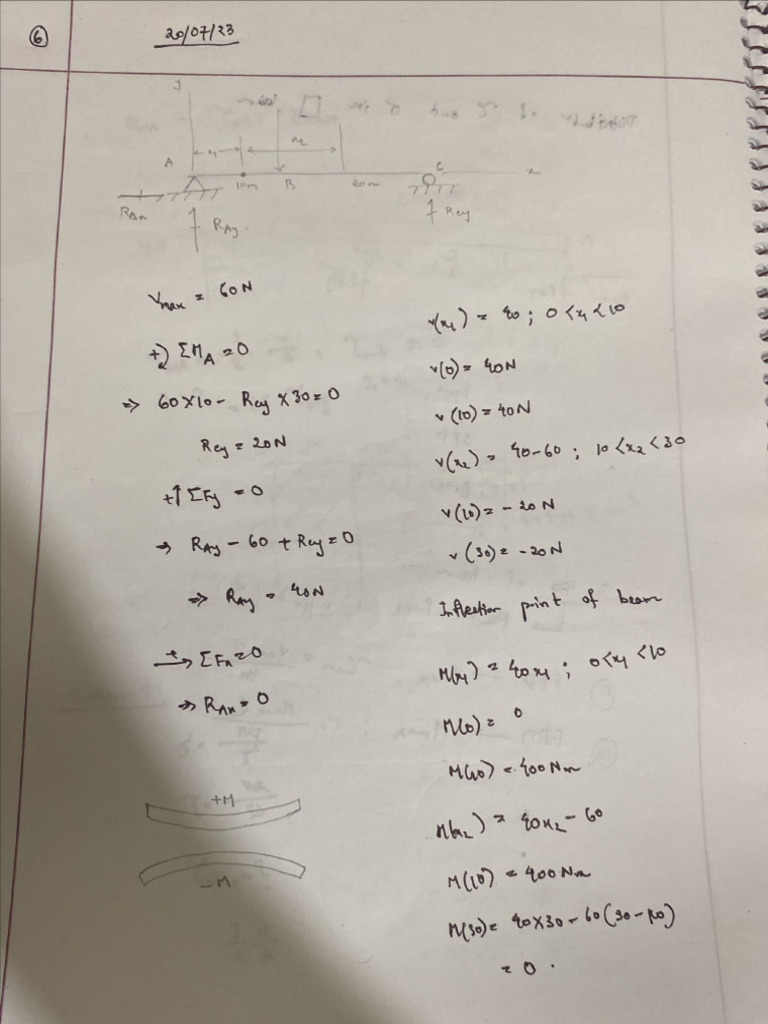 6
20/07/23
y
60
x₁
x₂
A
10m
B
20m
C
x
R_Ax
R_Ay
R_Cy
V_max = 60N
+) ΣM_A = 0
⇒ 60×10 - R_Cy × 30 = 0
R_Cy = 20N
+↑ ΣFy = 0
⇒ R_Ay - 60 + R_Cy = 0
⇒ R_Ay = 40N
+→ ΣFx = 0
⇒ R_Ax = 0
+M
-M
V(x₁) = 40 ; 0<x₁<10
V(0) = 40N
V(10) = 40N
V(x₂) = 40-60 ; 10<x₂<30
V(10) = -20N
V(30) = -20N
Inflection point of beam
M(x₁) = 40x₁ ; 0<x₁<10
M(0) = 0
M(10) = 400Nm
M(x₂) = 40x₂ - 60
M(10) = 400Nm
M(30) = 40×30 - 60(30-10)
= 0.